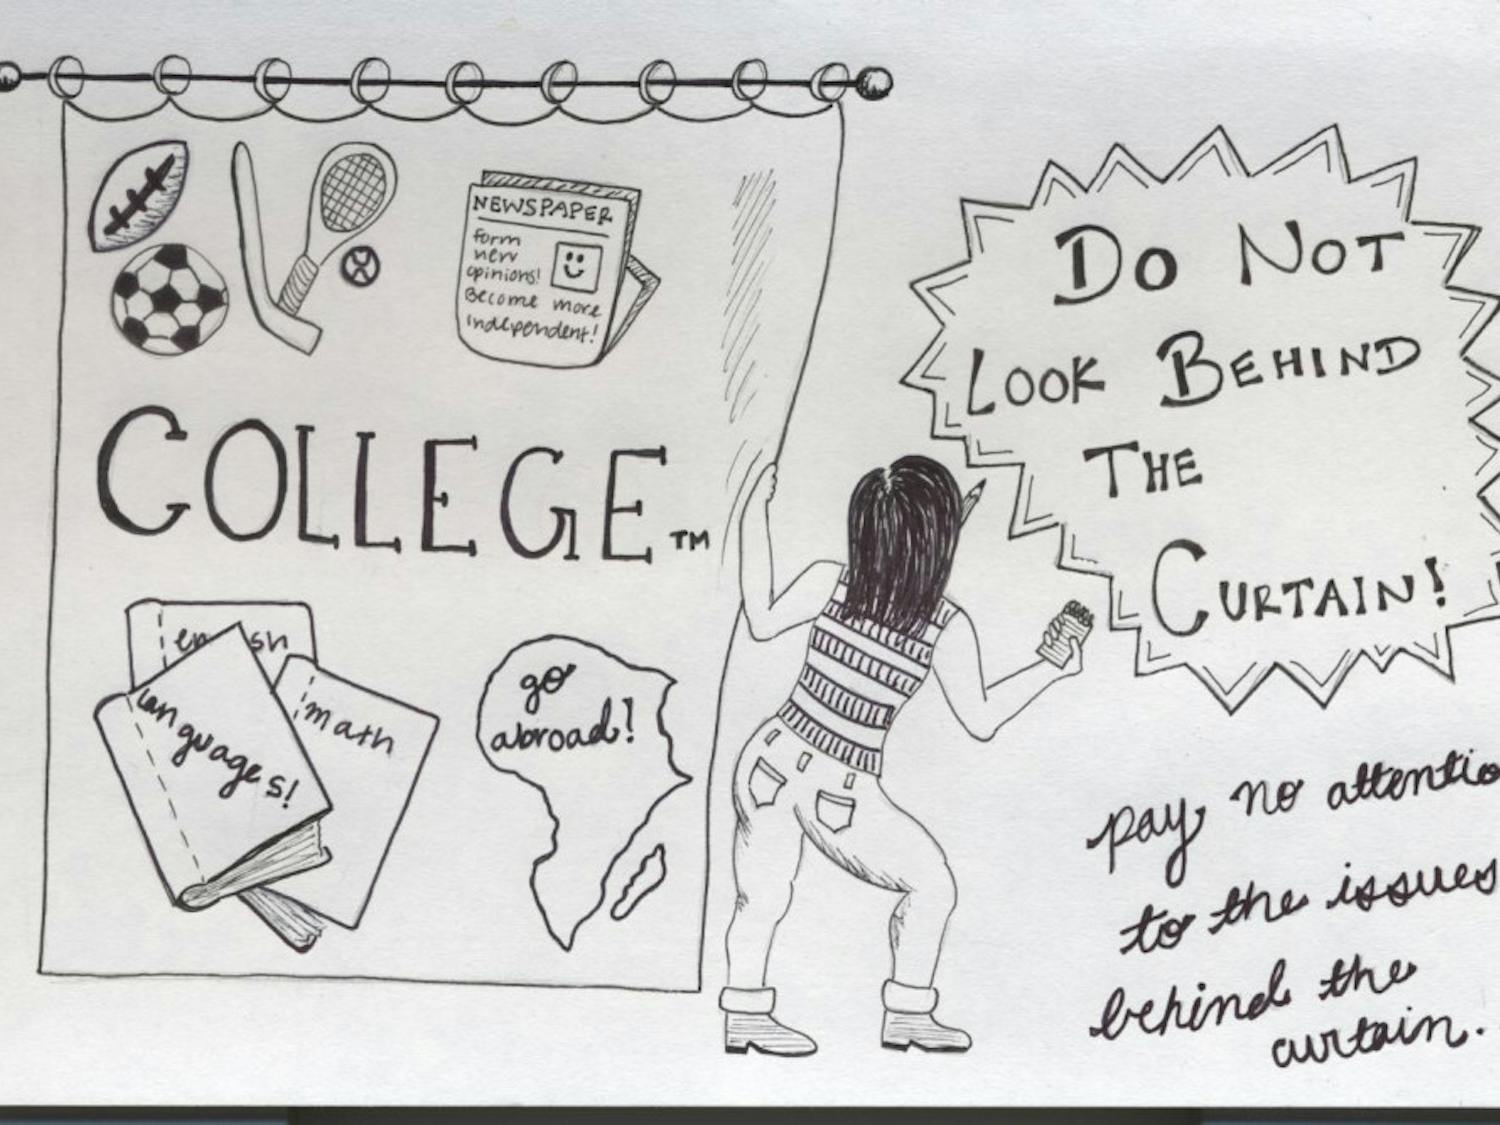 NEWSPAPER
form
new
opinions!
Become more
independent!
COLLEGE TM
math
languages!
go
abroad!
DO NOT
LOOK BEHIND
THE
CURTAIN!
pay no
to the issues
behind the
curtain.